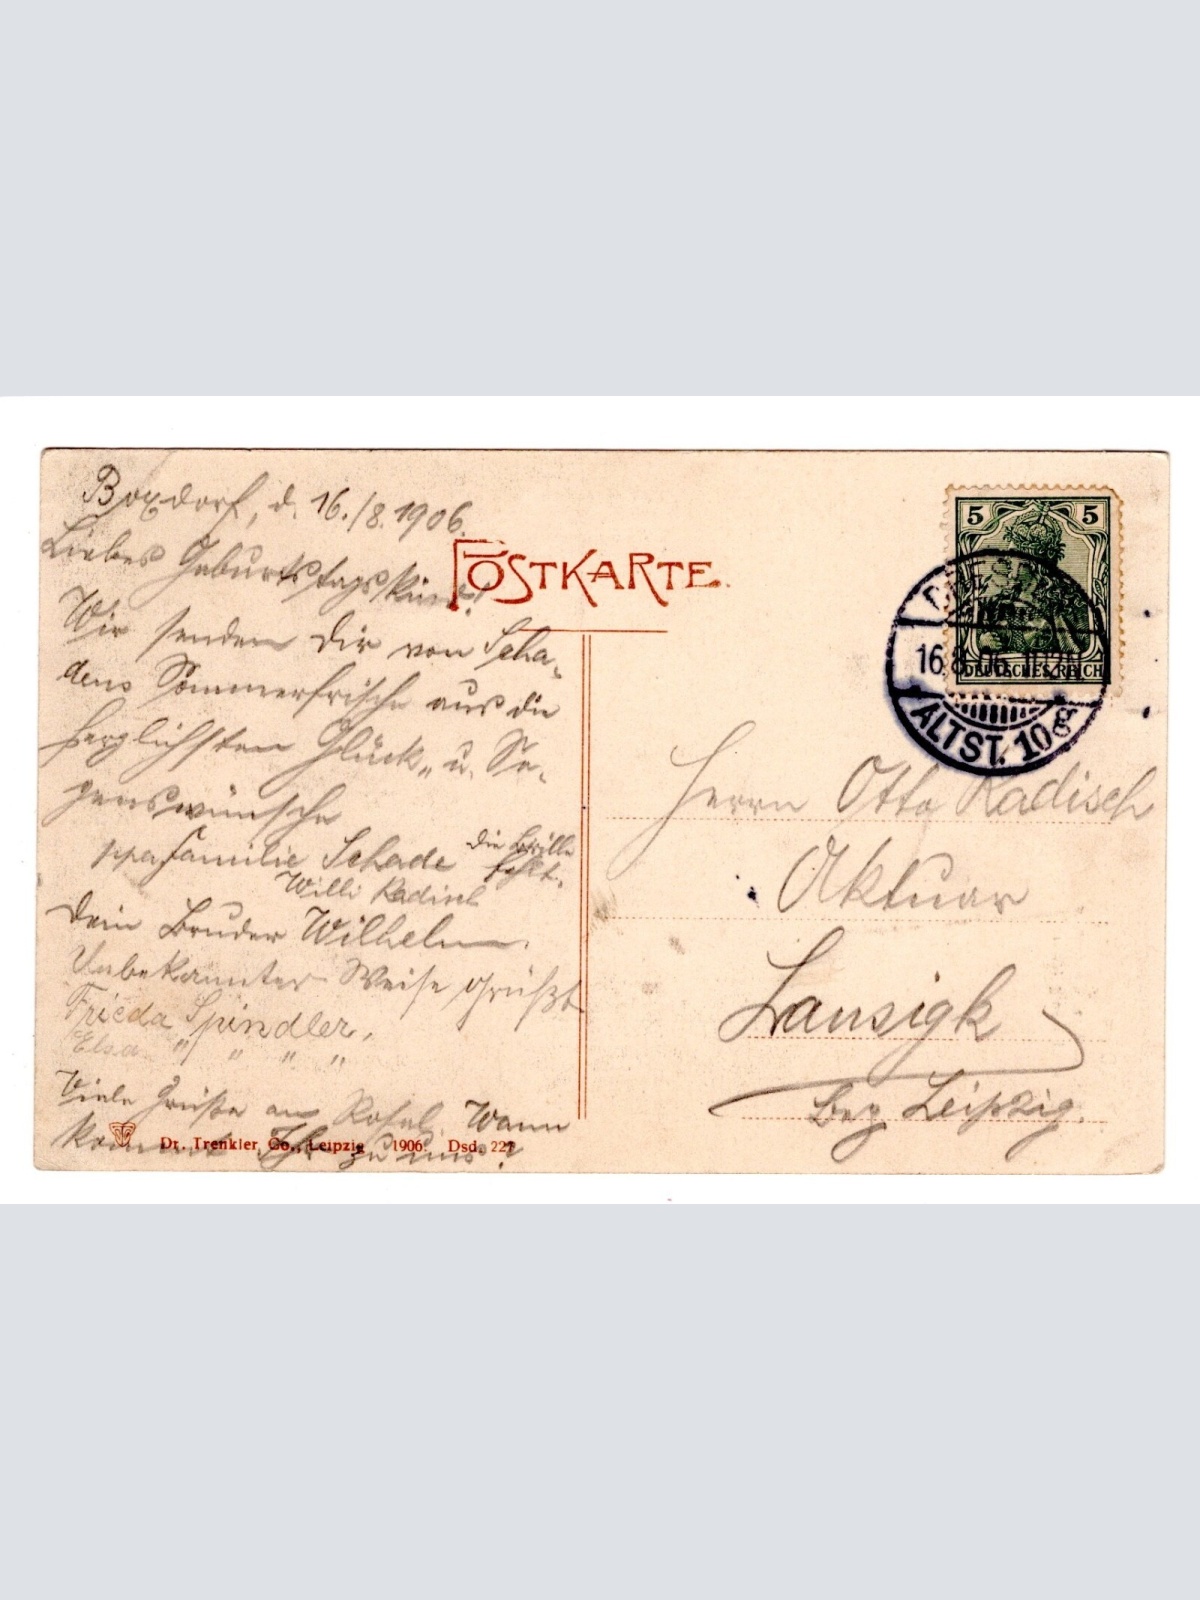 Boxdorf, d. 16./8. 1906.
Liebes Geburtstagskind!
Wir senden Dir von Scha-
dens Sommerfrische aus die
herzlichsten Glück- u. Se-
genswünsche
Familie Schade die Brille
fehlt.
Willi Radisch
Dein Bruder Wilhelm.
Unbekannter Weise grüßt
Frieda Spindler,
Elsa " " " "
Viele Grüße an Wann
kommt Ihr zu uns?
POSTKARTE.
5 5
DEUTSCHES REICH
DRESDEN
16.8.06.
ALTST. 10g
Herrn Otto Radisch
Aktuar
Lausigk
bez Leipzig.
Dr. Trenkler Co., Leipzig 1906 Dsd. 227